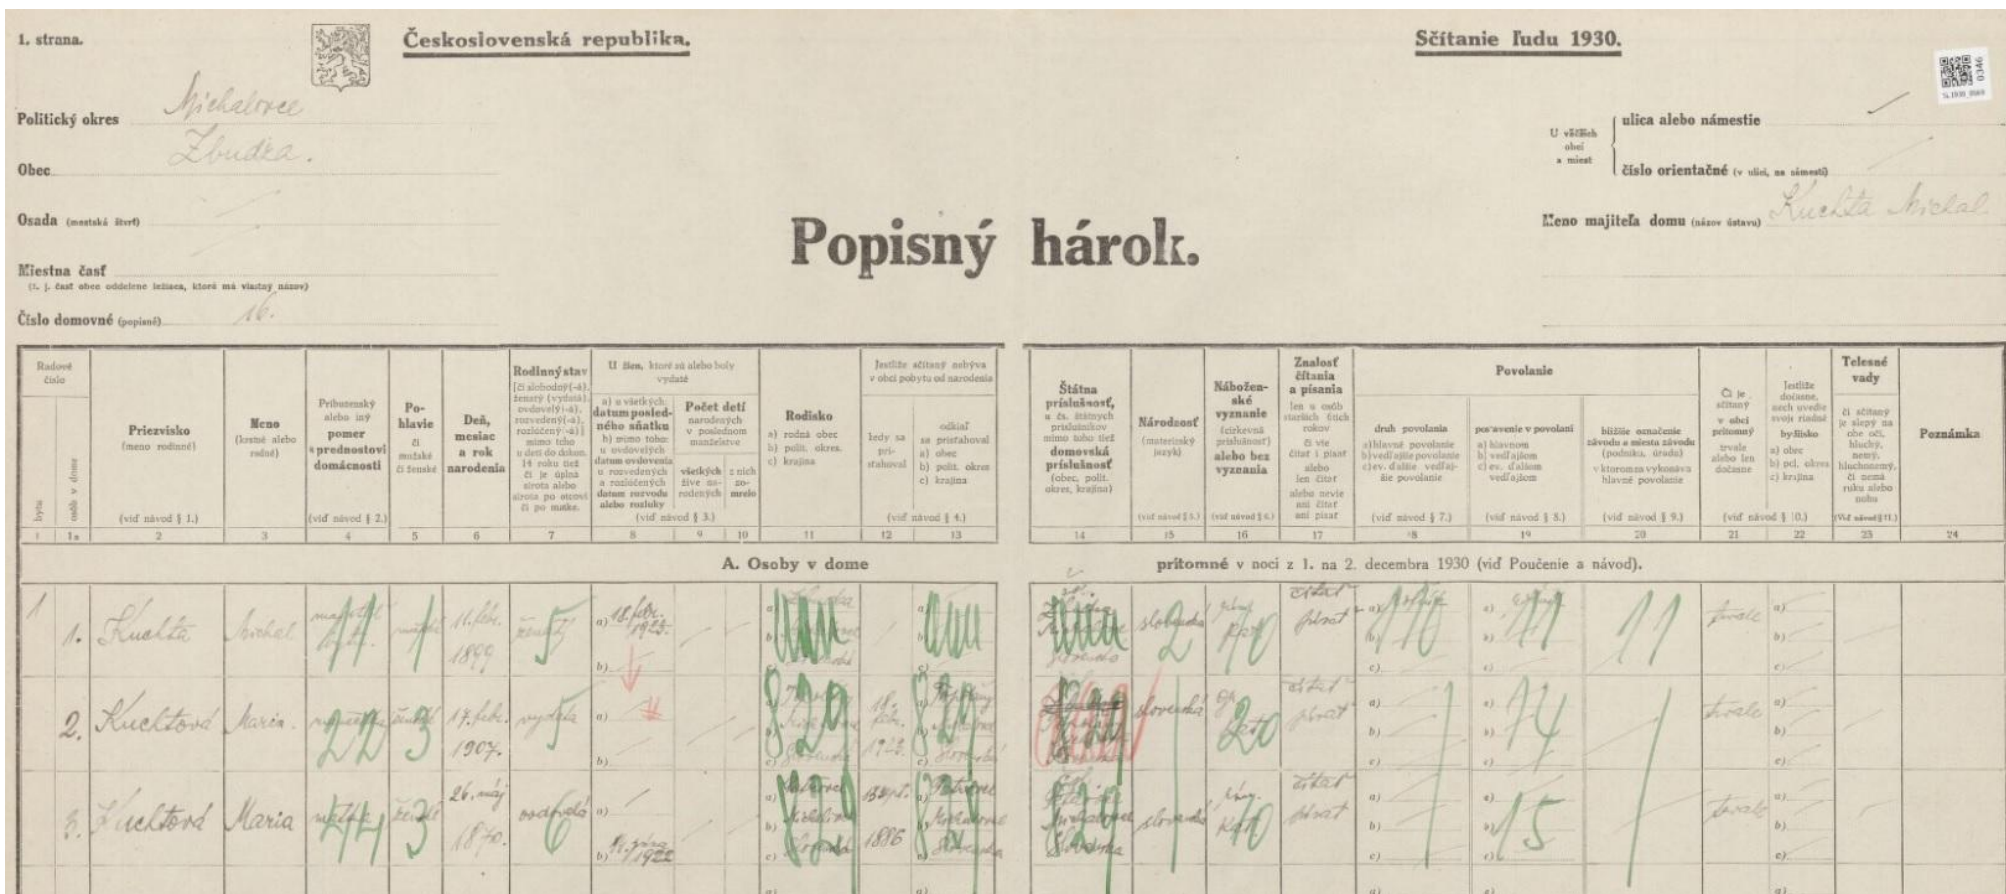 1. strana.
Československá republika.
Sčítanie ľudu 1930.
0346
Politický okres Michalovce
Obec Zbudza.
Osada (mestská štvrť)
Miestna časť
(t. j. časť obce oddelene ležiaca, ktorá má vlastný názov)
Číslo domovné (popisné) 16.
U väčších
obcí
a miest
ulica alebo námestie
číslo orientačné (v ulici, na námestí)
Meno majiteľa domu (názov ústavu) Kuchta Michal.
Popisný hárok.
Radové
číslo
bytu
osôb v dome
Priezvisko
(meno rodinné)
(viď návod § 1.)
Meno
(krstné alebo
rodné)
Príbuzenský
alebo iný
pomer
k prednostovi
domácnosti
(viď návod § 2.)
Po-
hlavie
či
mužské
či ženské
Deň,
mesiac
a rok
narodenia
Rodinný stav
[či slobodný(-á),
ženatý (vydatá),
ovdovelý(-á),
rozvedený(-á),
rozlúčený(-á)]
mimo toho
u detí do dokon.
14 roku tiež
či je úplná
sirota alebo
sirota po otcovi
či po matke.
U žien, ktoré sú alebo boly
vydaté
a) u všetkých:
datum posled-
ného sňatku
b) mimo toho:
u ovdovelých
datum ovdovenia
u rozvedených
a rozlúčených
datum rozvodu
alebo rozluky
Počet detí
narodených
v poslednom
manželstve
všetkých
žive na-
rodených
z nich
zo-
mrelo
(viď návod § 3.)
Rodisko
a) rodná obec
b) polit. okres.
c) krajina
Jestliže sčítaný nebýva
v obci pobytu od narodenia
kedy sa
pri-
stahoval
odkiaľ
sa pristahoval
a) obec
b) polit. okres
c) krajina
(viď návod § 4.)
Štátna
príslušnosť,
u čs. štátnych
príslušníkov
mimo toho tiež
domovská
príslušnosť
(obec, polit.
okres, krajina)
Národnosť
(materinský
jazyk)
(viď návod § 5.)
Nábožen-
ské
vyznanie
(cirkevná
príslušnosť)
alebo bez
vyznania
(viď návod § 6.)
Znalosť
čítania
a písania
len u osôb
starších 6tich
rokov
či vie
čítať i písať
alebo
len čítať
alebo nevie
ani čítať
ani písať
Povolanie
druh povolania
a) hlavné povolanie
b) vedľajšie povolanie
c) ev. ďalšie vedľaj-
šie povolanie
(viď návod § 7.)
postavenie v povolaní
a) hlavnom
b) vedľajšom
c) ev. ďalšom
vedľajšom
(viď návod § 8.)
bližšie označenie
závodu a miesta závodu
(podniku, úradu)
v ktorom sa vykonáva
hlavné povolanie
(viď návod § 9.)
Či je
sčítaný
v obci
prítomný
trvale
alebo len
dočasne
Jestliže
dočasne,
nech uvedie
svoje riadne
bydlisko
a) obec
b) pol. okres
c) krajina
(viď návod § 10.)
Telesné
vady
či sčítaný
je slepý na
obe oči,
hluchý,
nemý,
hluchonemý,
či nemá
ruku alebo
nohu
(Viď návod § 11.)
Poznámka
1 1a 2 3 4 5 6 7 8 9 10 11 12 13 14 15 16 17 18 19 20 21 22 23 24
A. Osoby v dome prítomné v noci z 1. na 2. decembra 1930 (viď Poučenie a návod).
1 1. Kuchta Michal 11. febr. 1899 ženatý 5 a) 18. febr. 1923. slovenská 2 čítať písať trvale
2. Kuchtová Maria. 22 3 17. febr. 1907. vydatá 5 829 18. febr. 1923. 829 slovenská 20 čítať písať 14 trvale
3. Kuchtová Maria matka 44 3 26. máj 1870. ovdovelá 6 1922 829 1886 829 slovenská 10 čítať písať 15 trvale